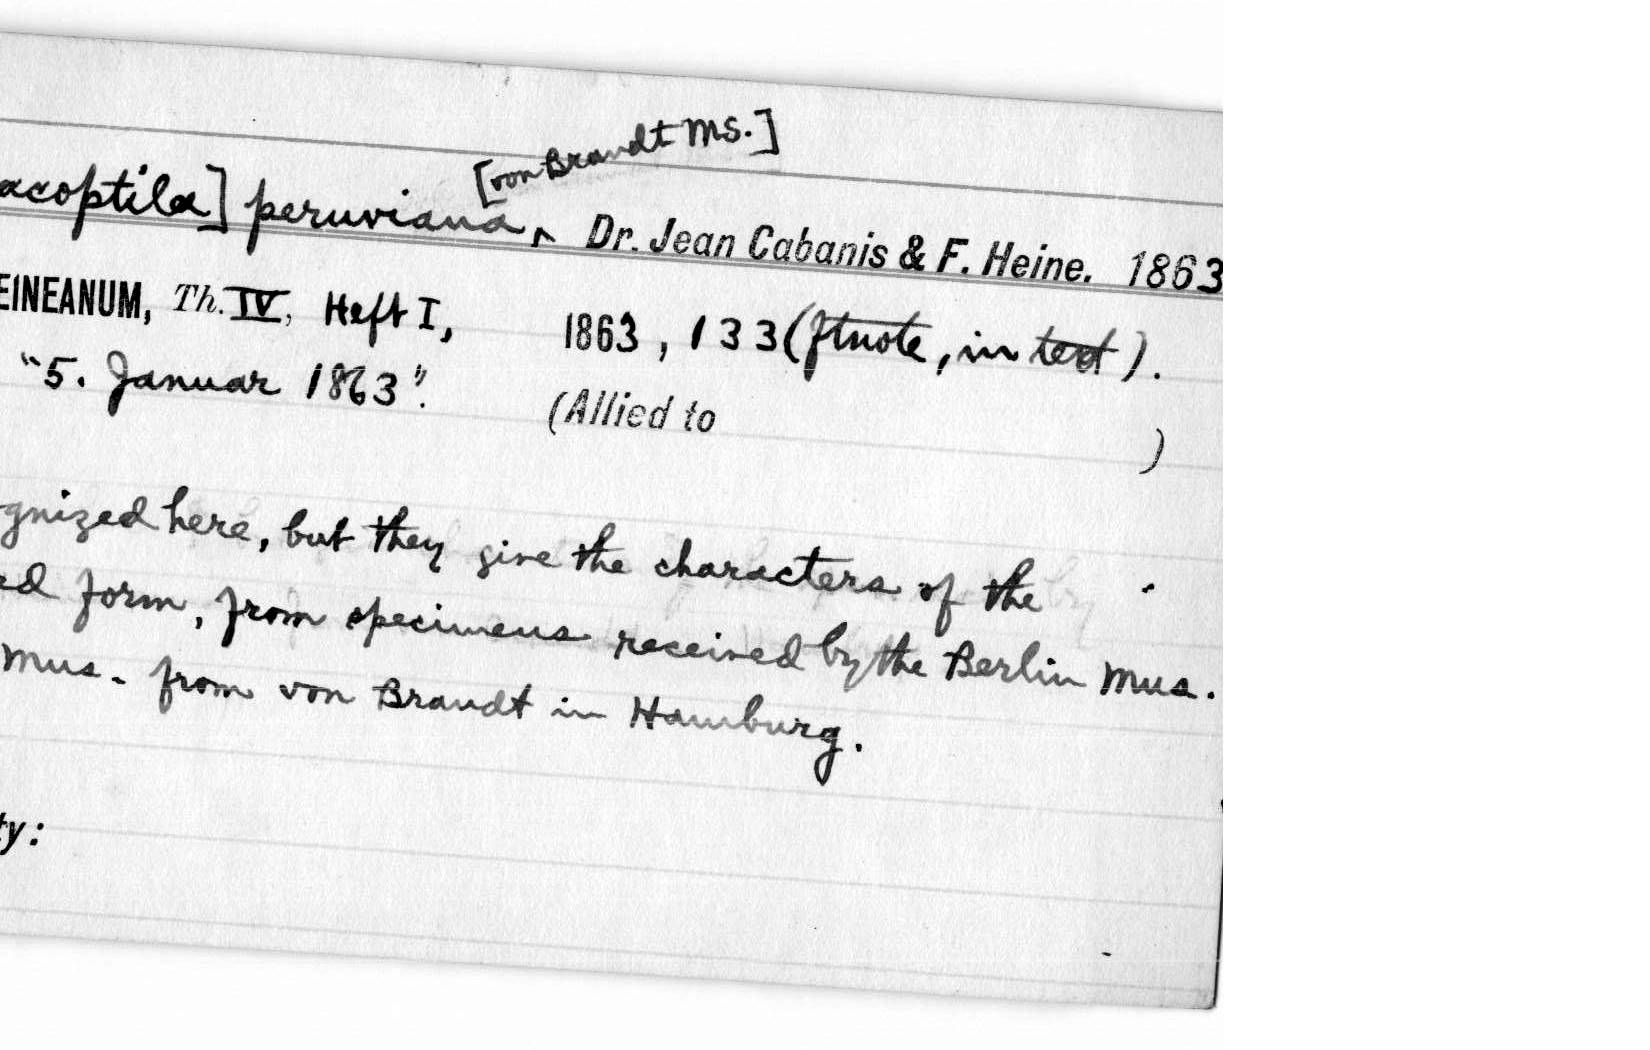 [von Brandt MS.]
acoptila] peruviana, ^ Dr. Jean Cabanis & F. Heine. 1863
EINEANUM, Th. IV, Heft I, 1863, 133 (ftnote, in text).
"5. Januar 1863". (Allied to )
gnized here, but they give the characters of the
ed form, from specimens received by the Berlin Mus.
Mus. from von Brandt in Hamburg.
ty: